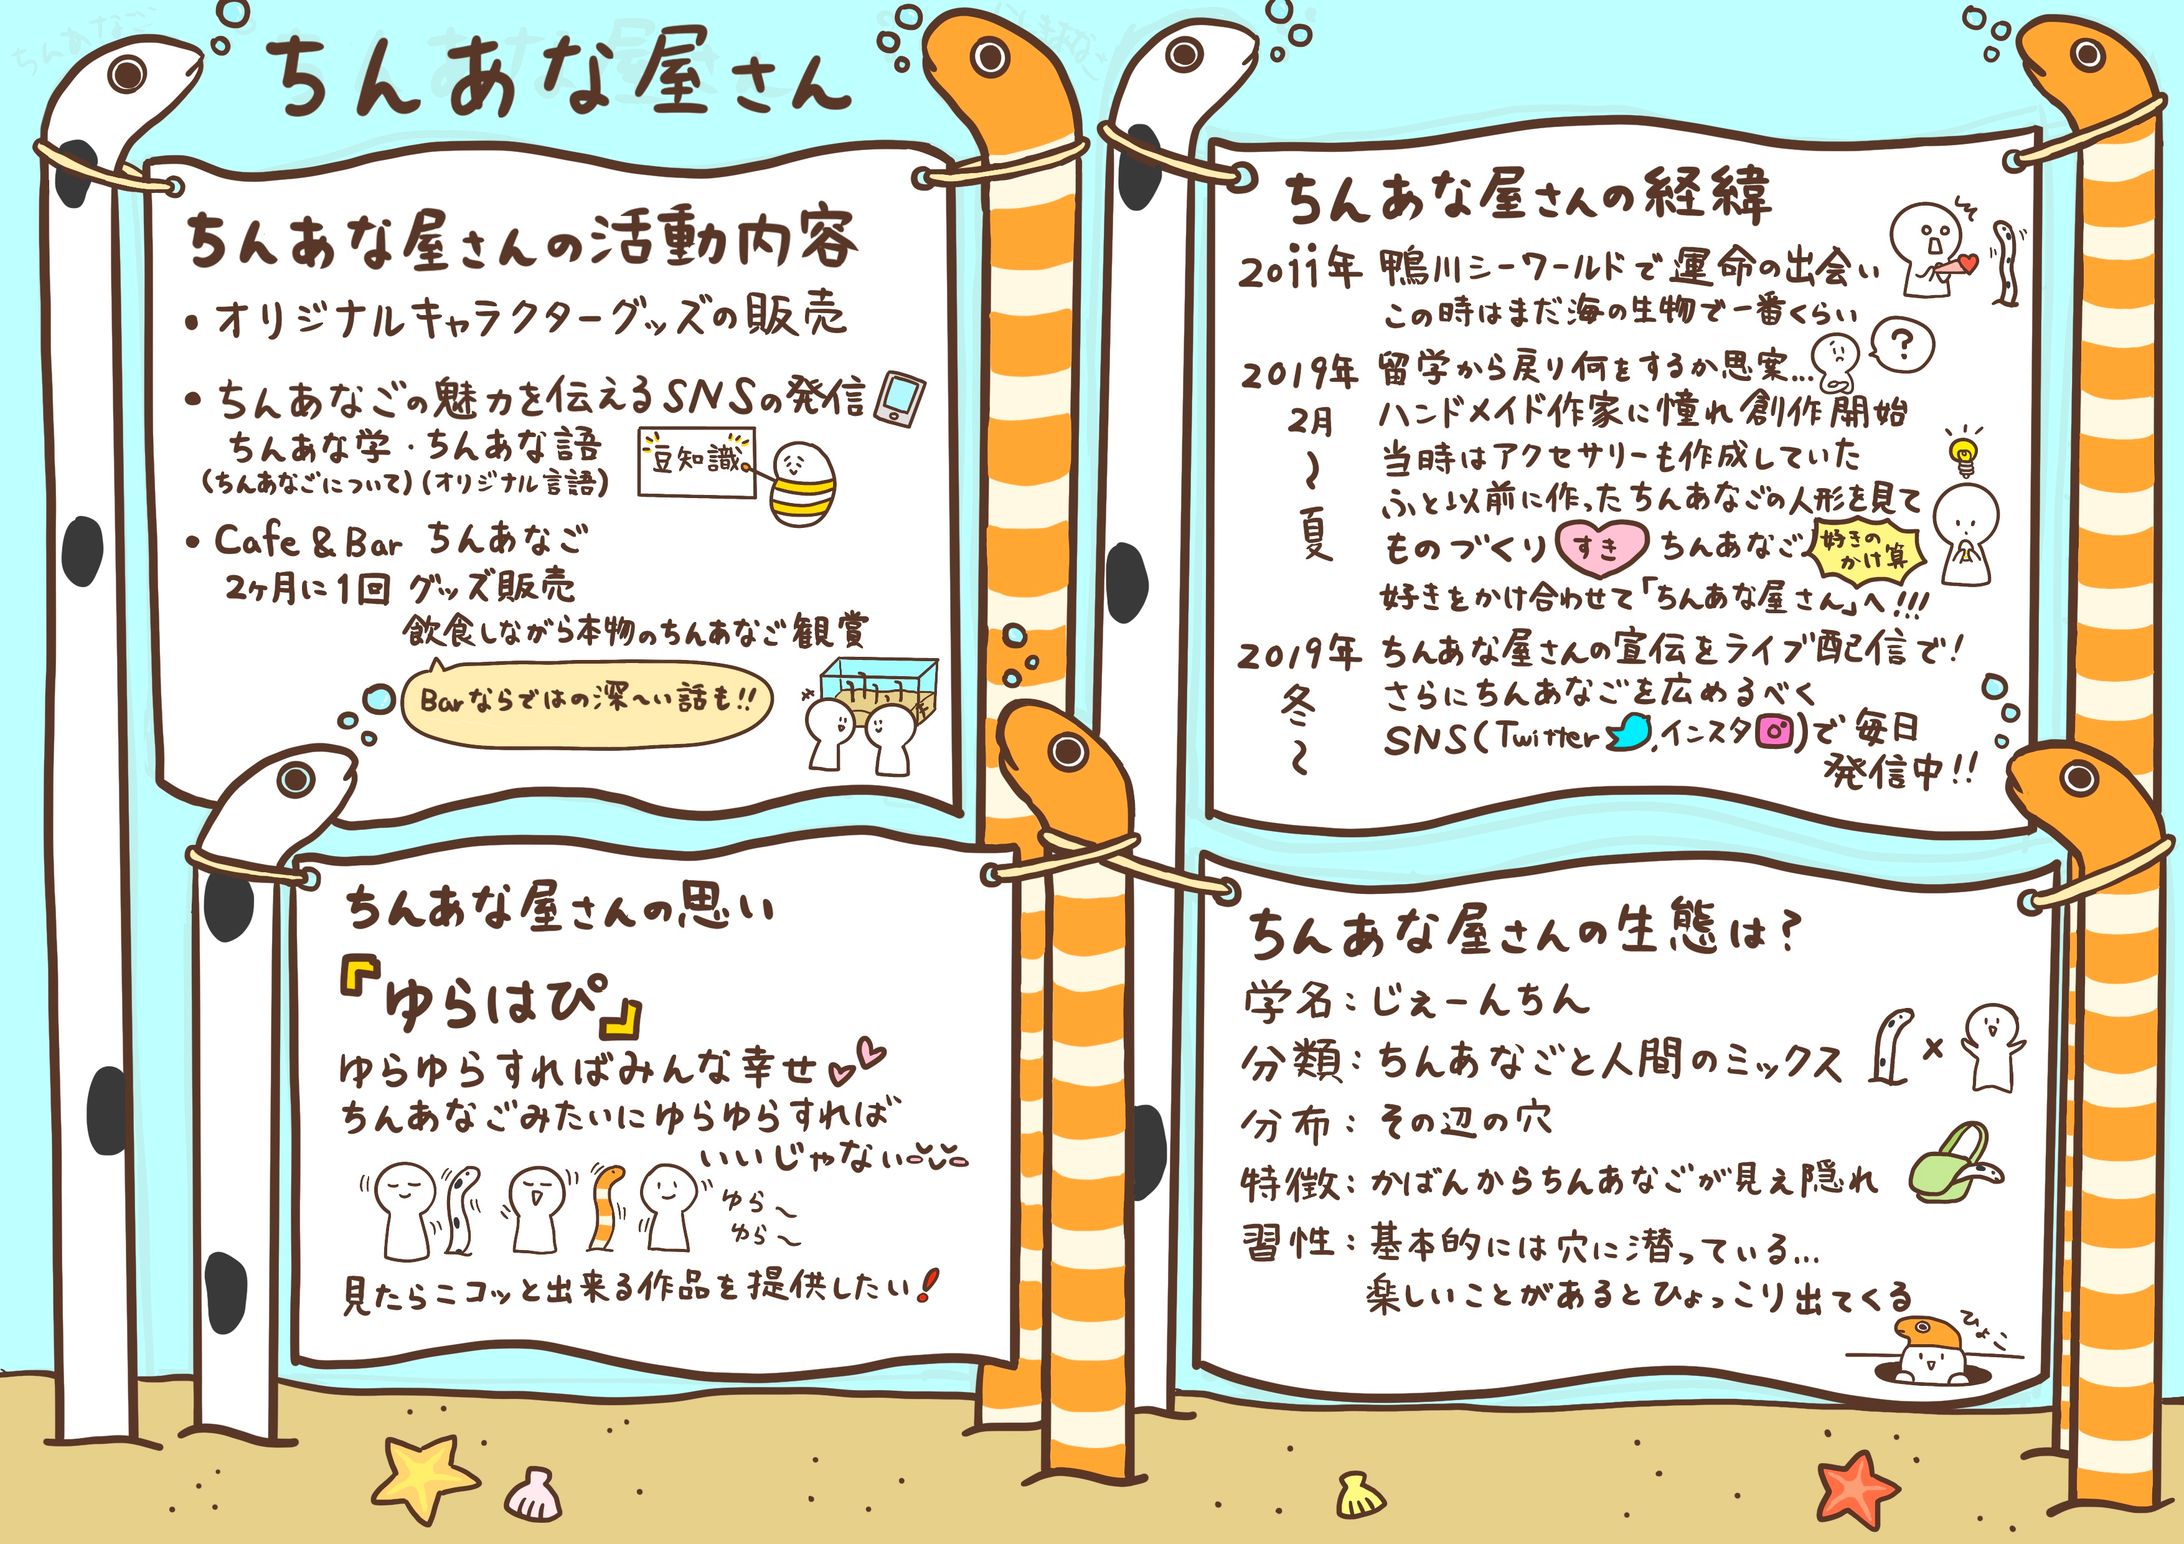 ちんあな屋さん
ちんあな屋さんの活動内容
・オリジナルキャラクターグッズの販売
・ちんあなごの魅力を伝えるSNSの発信
ちんあな学・ちんあな語
(ちんあなごについて)(オリジナル言語)
豆知識
・Cafe & Bar ちんあなご
2ヶ月に1回 グッズ販売
飲食しながら本物のちんあなご観賞
Barならではの深〜い話も!!
ちんあな屋さんの思い
『ゆらはぴ』
ゆらゆらすればみんな幸せ
ちんあなごみたいにゆらゆらすれば
いいじゃない
ゆら〜
ゆら〜
見たらニコッと出来る作品を提供したい!
ちんあな屋さんの経緯
2011年 鴨川シーワールドで運命の出会い
この時はまだ海の生物で一番くらい
2019年 留学から戻り何をするか思案...
?
2月 ハンドメイド作家に憧れ創作開始
〜 当時はアクセサリーも作成していた
夏 ふと以前に作ったちんあなごの人形を見て
ものづくり すき ちんあなご 好きの
かけ算
好きをかけ合わせて「ちんあな屋さん」へ!!!
2019年 ちんあな屋さんの宣伝をライブ配信で!
冬 さらにちんあなごを広めるべく
〜 SNS(Twitter,インスタ)で毎日
発信中!!
ちんあな屋さんの生態は?
学名:じぇーんちん
分類:ちんあなごと人間のミックス
×
分布:その辺の穴
特徴:かばんからちんあなごが見え隠れ
習性:基本的には穴に潜っている...
楽しいことがあるとひょっこり出てくる
ひょこ